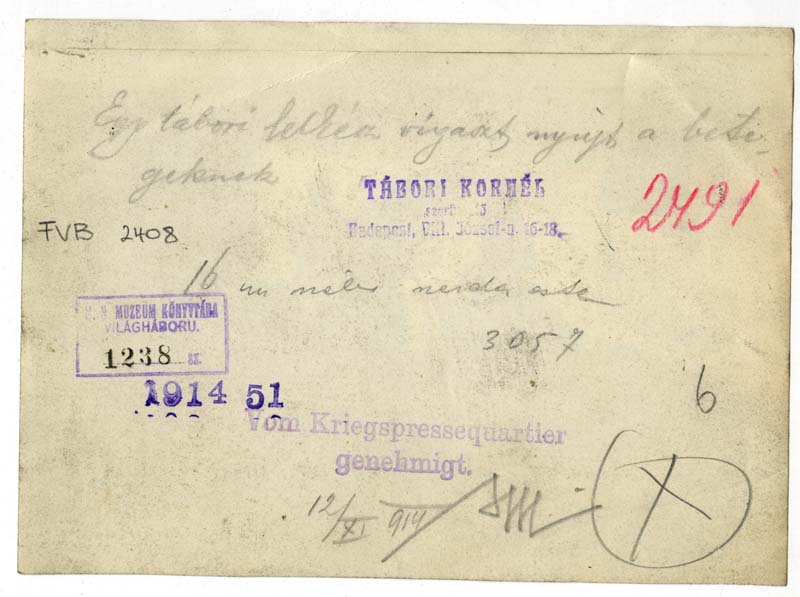 Egy tábori lelkész vigaszt nyújt a bete-
geknek
TÁBORI KORNÉL
Budapest, VIII. József-u. 16-18.
2491
FVB 2408
16
MUZEUM KÖNYVTÁRA
VILÁGHÁBORU.
1238 sz.
3057
1914 51
6
Vom Kriegspressequartier
genehmigt.
12/XI 914
X